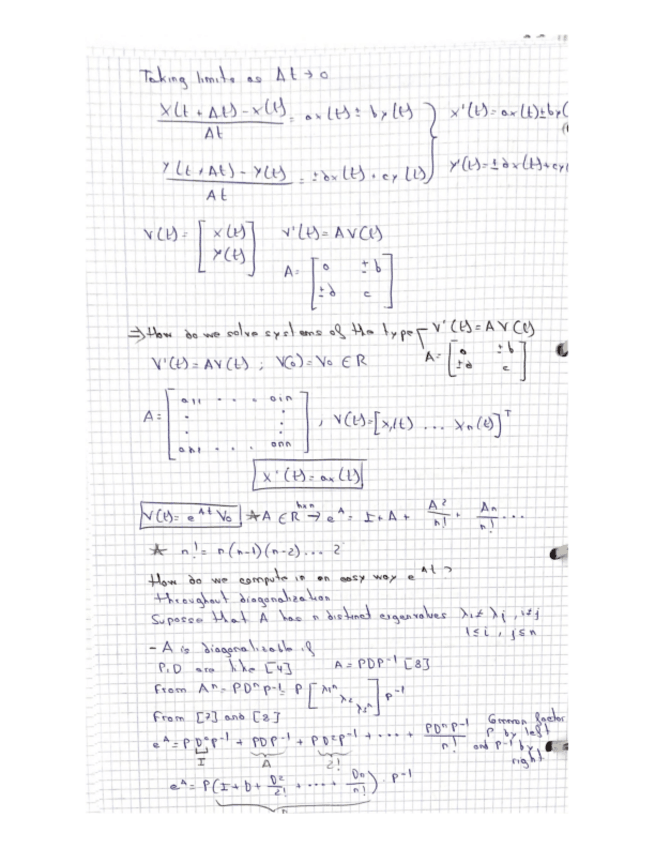 Taking limits as Δt → 0
X(t + Δt) - x(t) / Δt = ax(t) ± by(t) } x'(t) = ax(t) ± by(
Y(t + Δt) - Y(t) / Δt = ± dx(t) + cy(t) } Y'(t) = ± dx(t) + cy(
V(t) = [x(t) Y(t)] V'(t) = AV(t)
A = [a ±b ±d c]
⇒ How do we solve systems of the type V'(t) = AV(t)
V'(t) = AV(t) ; V(0) = V0 ∈ R A = [a ±b ±d c]
A = [a11 . . . a1n . . an1 . . . ann] , V(t) = [x1(t) ... Xn(t)]^T
x'(t) = ax(t)
V(t) = e^At V0 ★ A ∈ R^nxn → e^A = I + A + A^2/n! + An/n! ...
★ n! = n(n-1)(n-2)... 2
How do we compute in an easy way e^At ?
throughout diagonalization
Suposse that A has n distinct eigenvalues λi ≠ λj , i≠j
1≤i , j≤n
- A is diagonalizable if
P, D are like [4] A = PDP^-1 [8]
From A^n = PD^n P^-1 = P [λ1^n λ2 λ3^n] P^-1
From [7] and [8]
e^A = P D^0 P^-1 + PDP^-1 + PD^2P^-1 + ... + PD^nP^-1 / n! Common factor P by left and P^-1 by right
I A 2!
e^A = P(I + D + D^2/2! + ... + Dn/n!) . P^-1